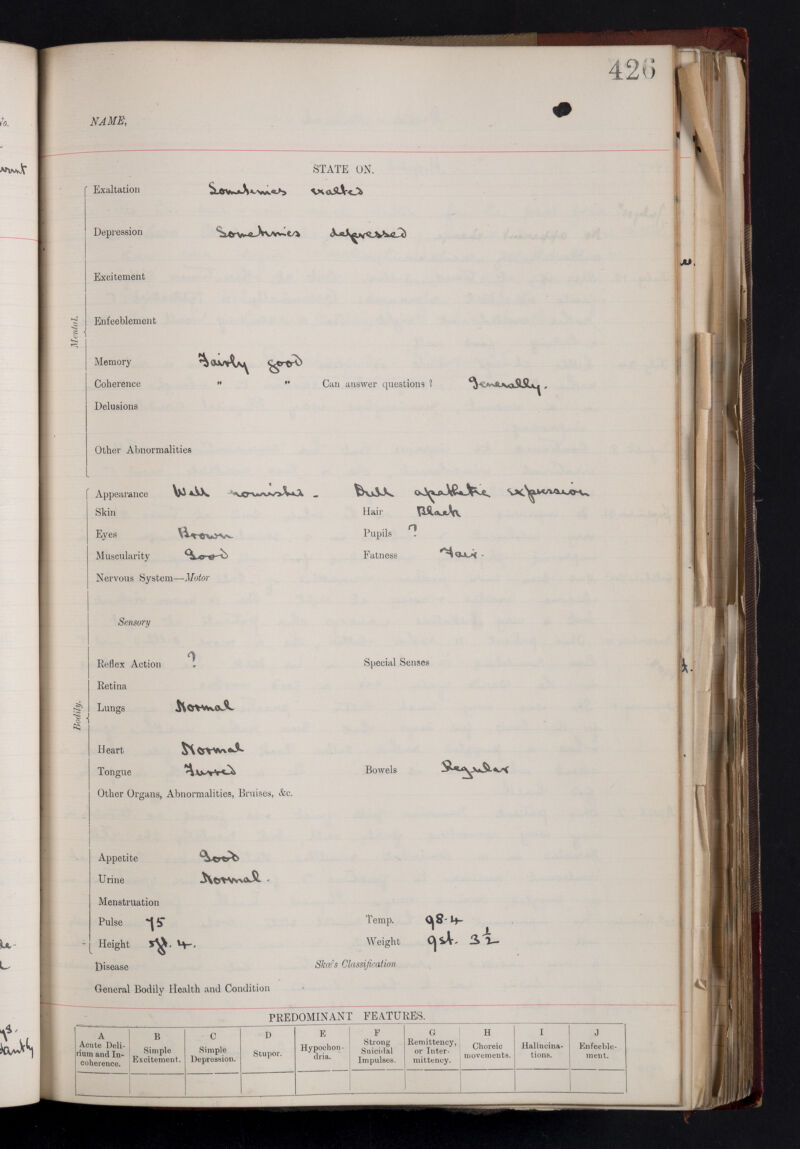 426
NAME,
STATE ON.
Mental.
Exaltation Sometimes exalted
Depression Sometimes depressed
Excitement
Enfeeblement
Memory Fairly good
Coherence " " Can answer questions? Generally.
Delusions
Other Abnormalities
Bodily.
Appearance Well nourished - Dull apathetic expression
Skin Hair Black
Eyes Brown Pupils ?
Muscularity Good Fatness Fair.
Nervous System—Motor
Sensory
Reflex Action ? Special Senses
Retina
Lungs Normal
Heart Normal
Tongue Furred Bowels Regular
Other Organs, Abnormalities, Bruises, &c.
Appetite Good
Urine Normal.
Menstruation
Pulse 75 Temp. 98.4
Height 5ft. 4. Weight 9st. 3 1/2
Disease Skae's Classification
General Bodily Health and Condition
PREDOMINANT FEATURES.
A B C D E F G H I J
Acute Delirium and Incoherence. Simple Excitement. Simple Depression. Stupor. Hypochondria. Strong Suicidal Impulses. Remittency, or Intermittency. Choreic movements. Hallucinations. Enfeeblement.